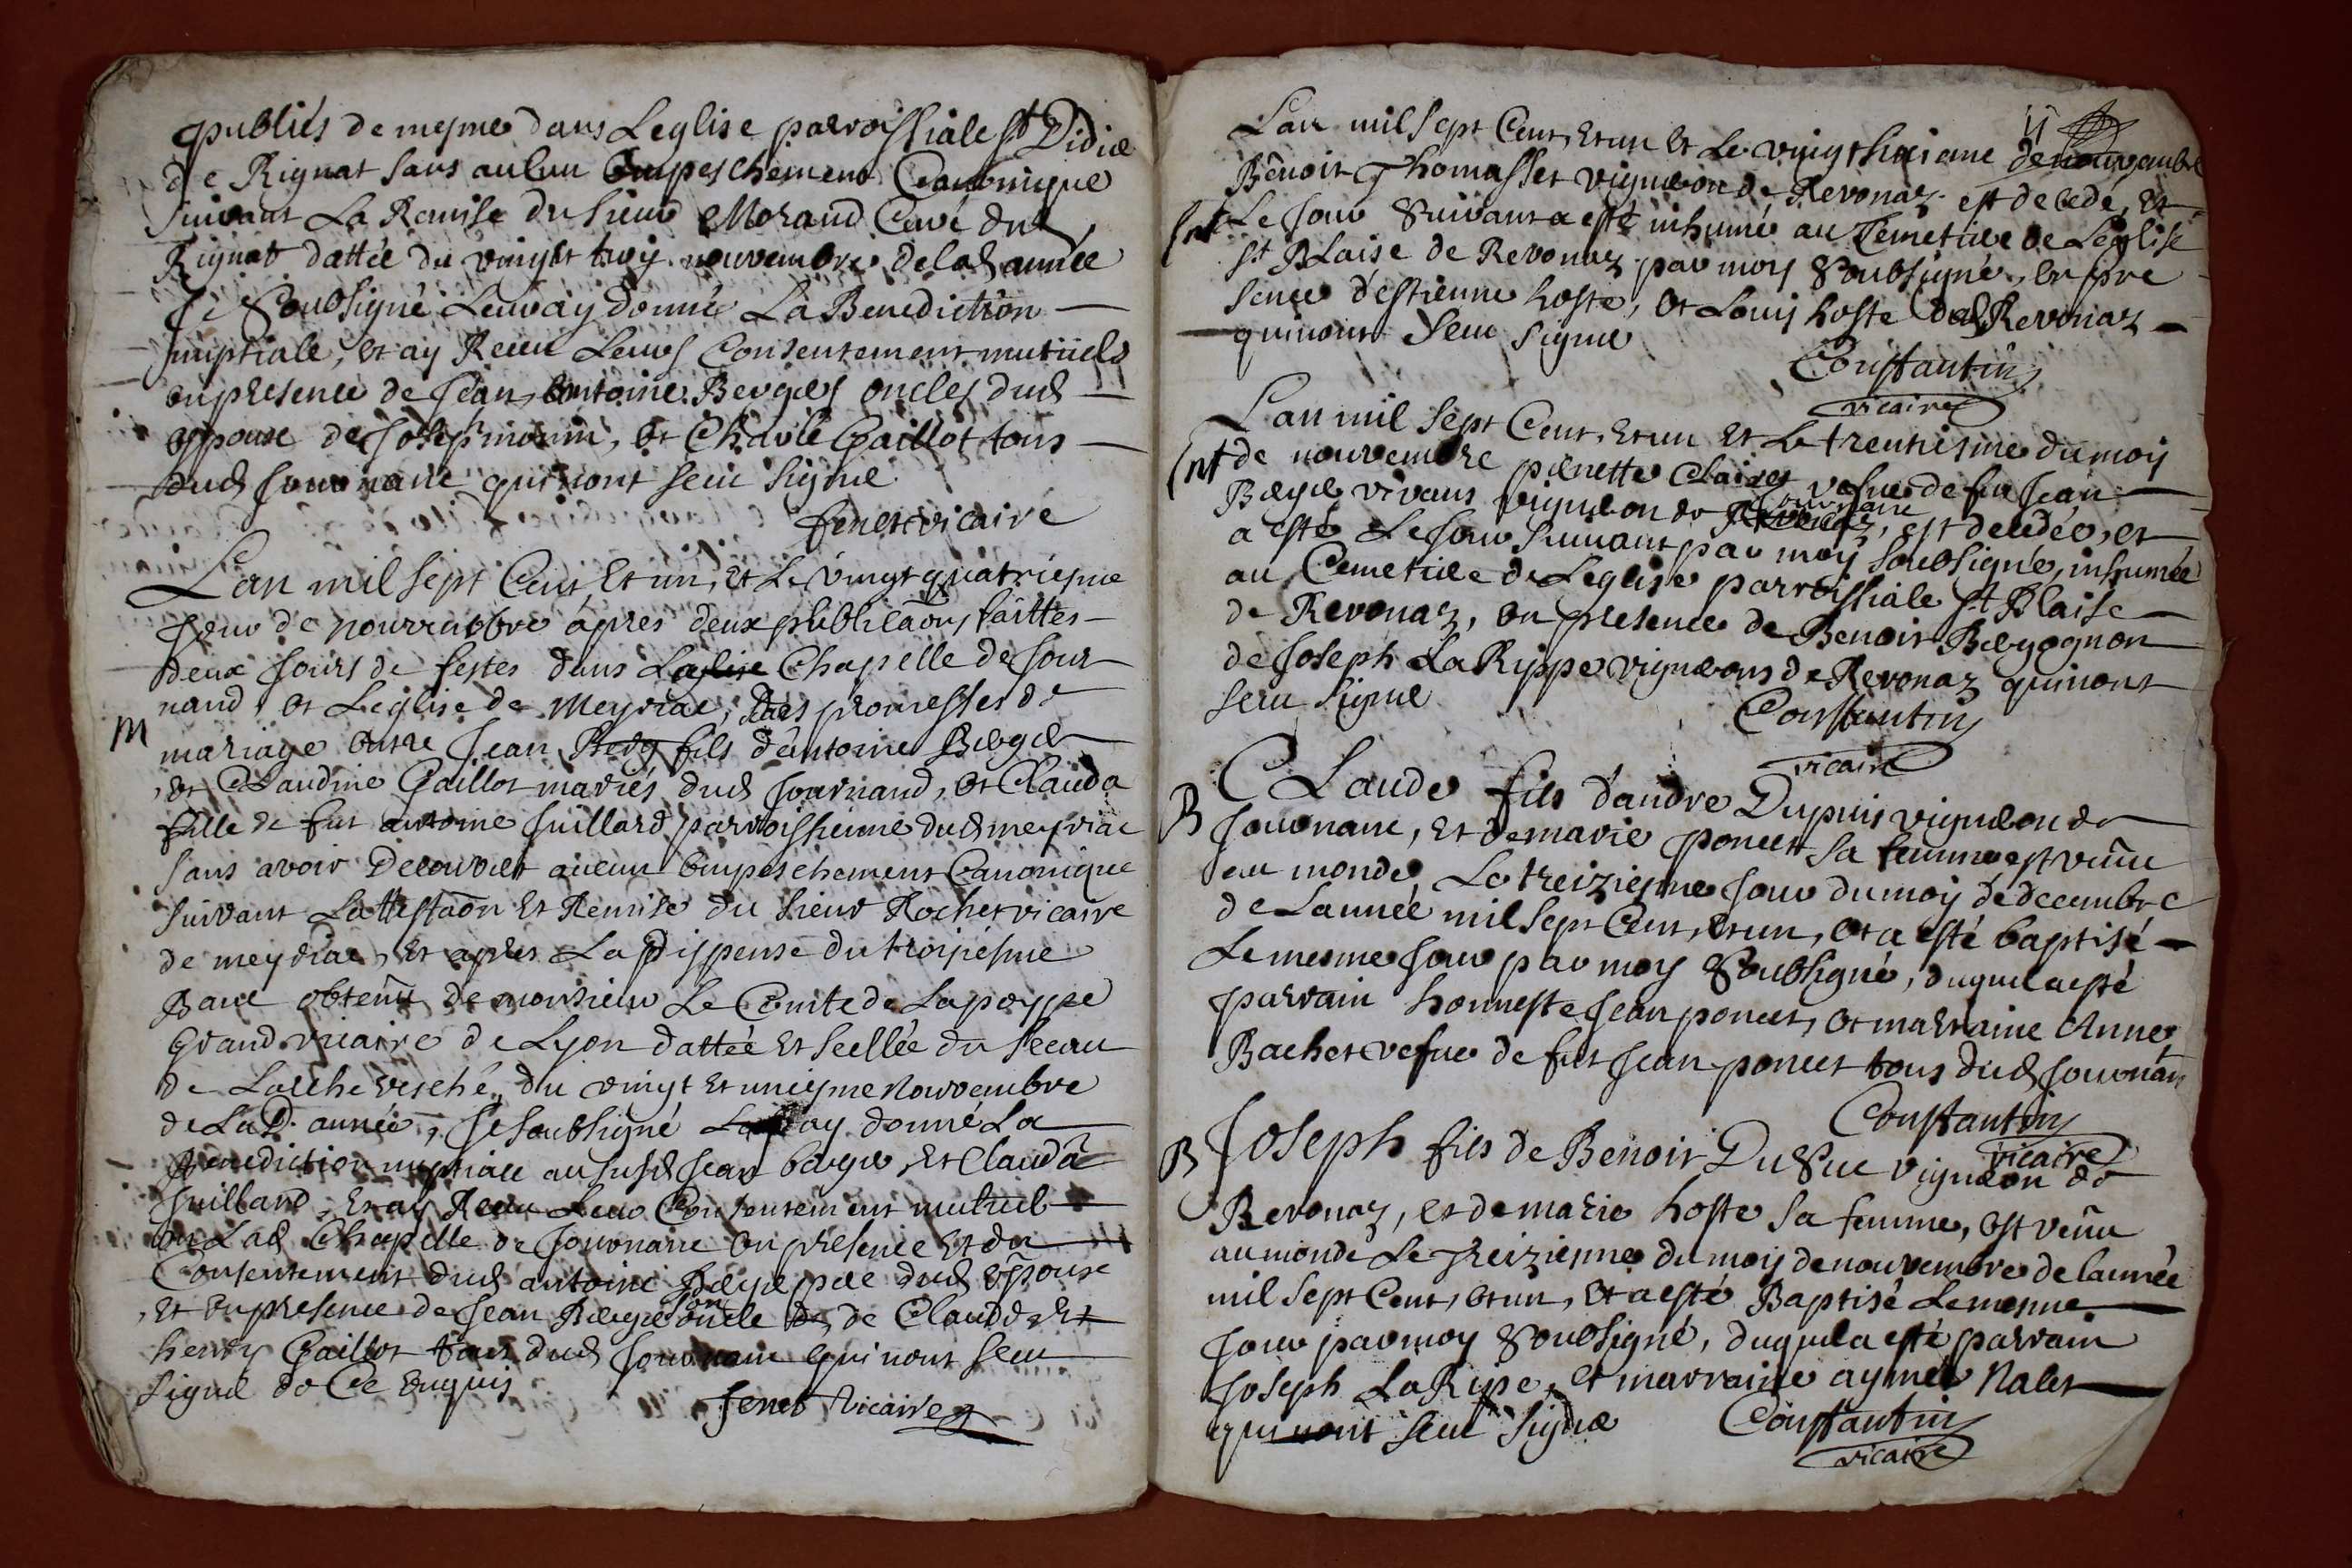 publiés de mesme dans Leglise parroissiale st Didier
de Rignat sans aulcun Empeschement Canonique
suivant La Remise du sieur Morand Curé dud
Rignat dattée du vingt troiz nouvembre de lad année
Je Soubsigné Leur ay donné La Benediction
nuptiale, et ay Receu Leurs Consentement mutuels
en presence de Jean, Antoine Berger oncles dud
espoux de Joseph morin, et Charle Gaillot tous
dud Journanc qui n'ont sceu signer
fenet vicaire
Lan mil sept Cent, Et un, et Le vingt quatriesme
Jour de nouvembre apres deux publicaõns faittes
deux Jours de festes dans Leglise Chapelle de Jour
nand, et Leglise de Meyriac, des promesses de
M mariage entre Jean Berg fils d'antoine Berger
et Claudine Gaillot mariés dud Journand, et Clauda
fille de fut antoine Juillard parroissienne dud meyriac
sans avoir Decouvert aucun empeschement Canonique
suivant Lattestaõn Et Remise du sieur Rochet vicaire
de meyriac, et apres La Dispense du troisiesme
Banc obtenüe de monsieur Le Comte de Lapoyppe
Grand vicaire de Lyon dattée Et scellée du sceau
de Larchevesché, du vingt et uniesme Nouvembre
de LaD. année, Je soubsigné ay donné La
Benediction nuptiale au susd Jean berger, Et Clauda
Juillard, et ay Receu Leur Consentement mutuel
en Lad Chapelle de Journanc en presence et du
Consentement dud antoine Berger pere dud Espoux
et en presence de Jean Berger son oncle de Claude Et
henry Gaillot tous dud Journanc qui n'ont sceu
signer de Ce enquis
fenet vicaire
11
Lan mil sept Cent, et un et Le vingt huictiesme de nouvembre
Benoit Thomasset vigneron de Revonaz est decedé, et
Ent Le Jour Suivant a esté inhumé au Cemetiere de Leglise
st Blaise de Revonaz par moy Soubsigné, en pre
sence d'estienne hoste, et Louis hoste dud Revonaz
qui n'ont sceu signer
Constantin
vicaire
Lan mil sept Cent, Et un et Le trentiesme du moy
Ent de nouvembre pernette Claire vefue de feu Jean
Berger vivant vigneron de Revonaz Journanc, est decedée, et
a esté Le Jour suivant par moy Soubsigné, inhumée
au Cemetiere de Leglise parroissiale st Blaise
de Revonaz, en presence de Benoit Bergognon
de Joseph La Rippe vignerons de Revonaz qui n'ont
sceu signer
Constantin
vicaire
Claude fils d'andre Dupuis vigneron de
B Journanc, et de marie poncet sa femme est venu
au monde Le treiziesme Jour du moy de decembre
de Lannée mil sept Cent, et un, et a esté baptisé
Le mesme Jour par moy Soubsigné, duquel a esté
parrain honneste Jean poncet, et marraine Anne
Bachet vefue de fut Jean poncet tous dud Journan
Constantin
vicaire
B Joseph fils de Benoit DuSuc vigneron de
Revonaz, et de marie hoste sa femme, est venu
au monde Le treiziesme du moy de nouvembre de lannée
mil sept Cent, et un, et a esté Baptisé Le mesme
Jour par moy Soubsigné, duquel a esté parrain
Joseph La Ripe, et marraine aymée Nalet
qui n'ont sceu signer
Constantin
vicaire